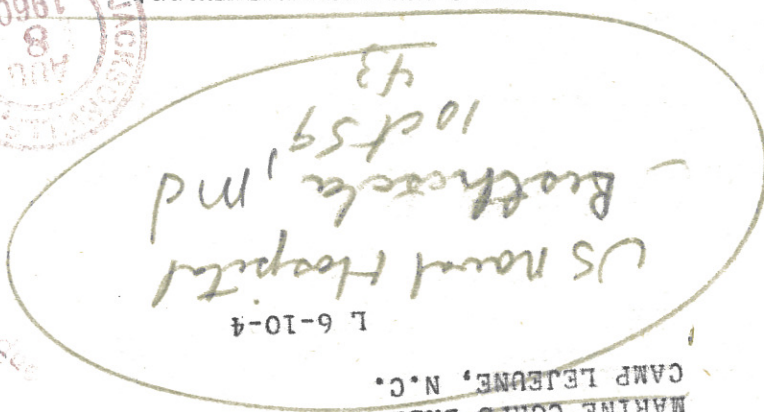 MARINE CORPS
CAMP LEJEUNE, N.C.
L 6-10-4
US Naval Hospital
Bethesda, Md
1 Oct 59
43
JACKSONVILLE
AUG
8
1960